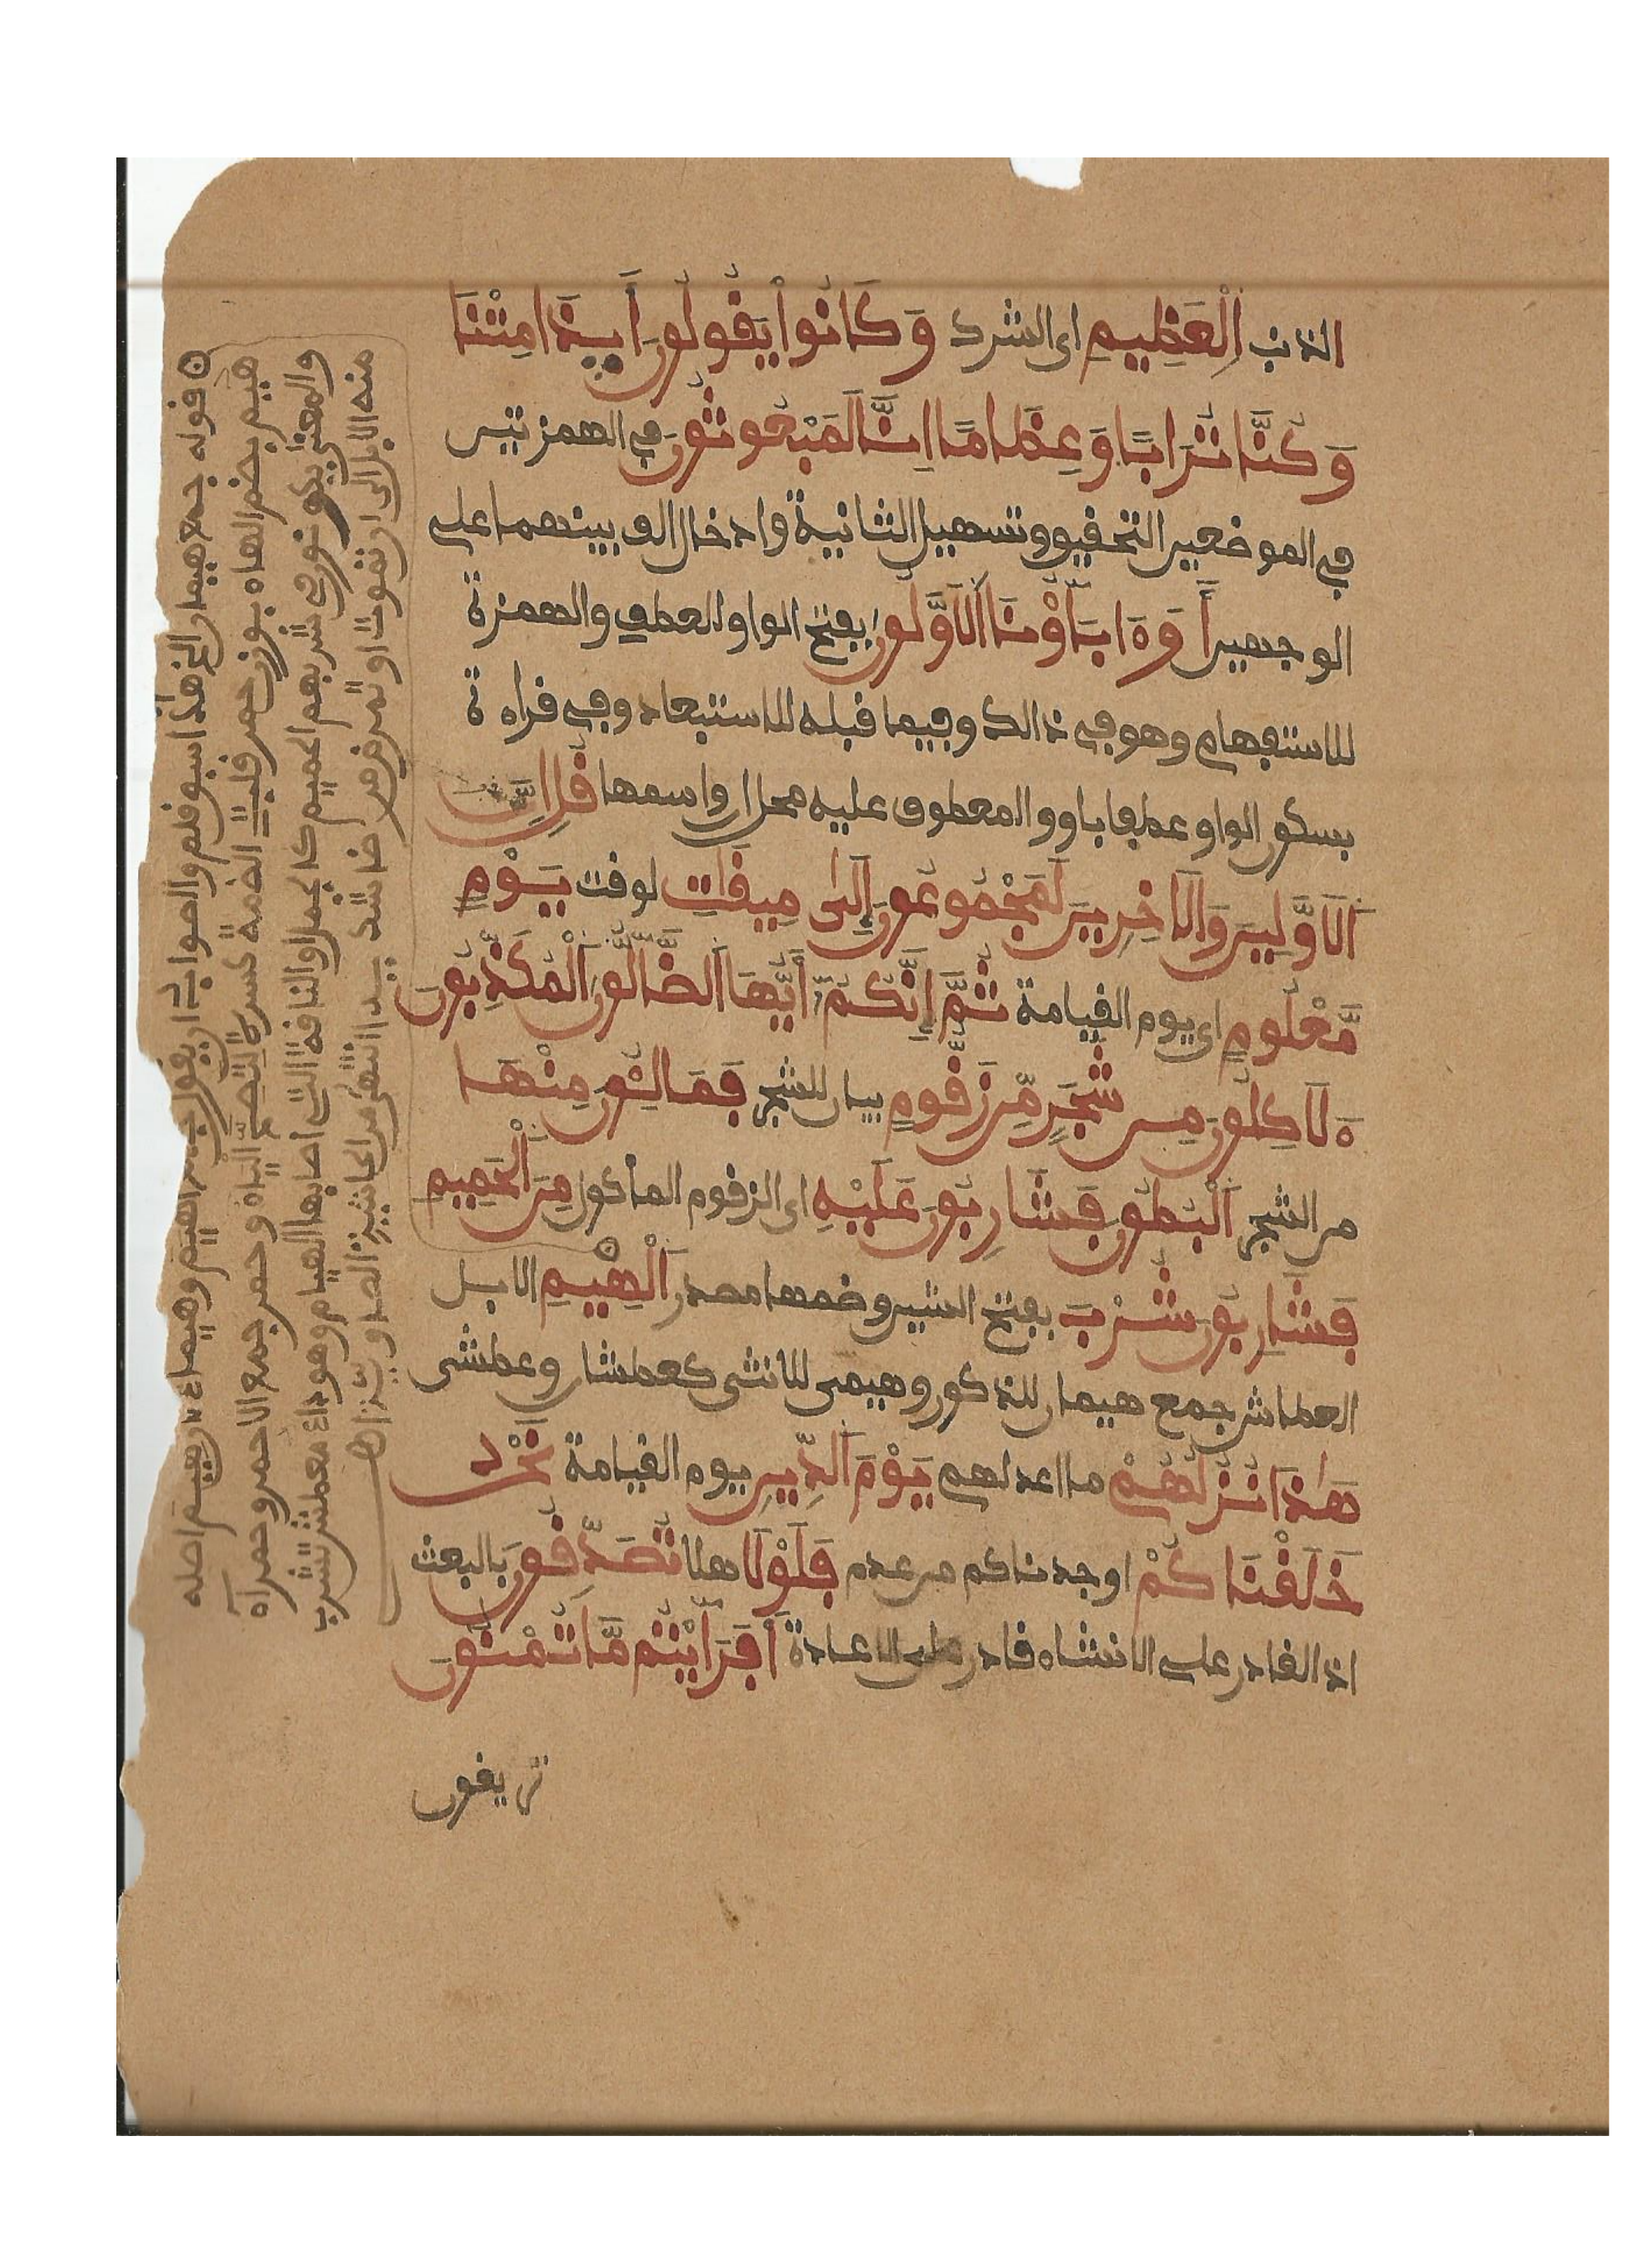 الذنب اِ۬لْعَظِيمِ اى الشرك وَكَانُواْ يَقُولُونَ أَيِذَا مِتْنَا
وَكُنَّا تُرَاباً وَعِظَاماً اِنَّا لَمَبْعُوثُونَ في الهمزتين
في الموضعين التحقيق وتسهيل الثانية وادخال الف بينهما على
الوجهين أَوَءَابَآؤُنَا اَ۬لَاوَّلُونَ بفتح الواو للعطف والهمزة
للاستفهام وهو في ذالك وفيما قبله للاستبعاد وفي قراءة
بسكون الواو عطفا باو والمعطوف عليه محل ان واسمها قُلِ اِنَّ
اَ۬لَاوَّلِينَ وَالَاخِرِينَ لَمَجْمُوعُونَ إِلَىٰ مِيقَاتِ لوقت يَوْمٍ
مَّعْلُومٍ اى يوم القيامة ثُمَّ إِنَّكُمُۥٓ أَيُّهَا اَ۬لضَّآلُّونَ اَ۬لْمُكَذِّبُونَ
ءَلَاكِلُونَ مِن شَجَرٍ مِّن زَقُّومٍ بيان للشجر فَمَالِـُٔونَ مِنْهَا
من الشجر اَ۬لْبُطُونَ فَشَارِبُونَ عَلَيْهِ اى الزقوم الماكول مِنَ اَ۬لْحَمِيمِ
فَشَارِبُونَ شُرْبَ بفتح الشين وضمها مصدر اَ۬لْهِيمِ الابل
العطاش جمع هيمان للذكور وهيمى للانثى كعطشان وعطشى
هَٰذَا نُزُلُهُمْ ما اعد لهم يَوْمَ اَ۬لدِّينِ يوم القيامة نَحْنُ
خَلَقْنَاكُمْ اوجدناكم من عدم فَلَوْلَا هلا تُصَدِّقُونَ بالبعث
اذ القادر على الانشاء قادر على الاعادة أَفَرَأَيْتُم مَّا تُمْنُونَ
تريقون
قوله جمع هيمان الخ هذا سبق قلم والصواب ان يقول جمع اهيم وهيماء لان هيم اصله
هيم بضم الهاء بوزن حمر قلبت الضمة كسرة لتصح الياء وحمر جمع الاحمر وحمراء
والمعنى يكونون في شربهم الحميم كالجمل او الناقة التي اصابها الهيام وهو داء معطش تشرب
منه الابل الى ان تموت او تمرض مرضا شديدا انتهى من الحاشيتين الصاوي اهـ